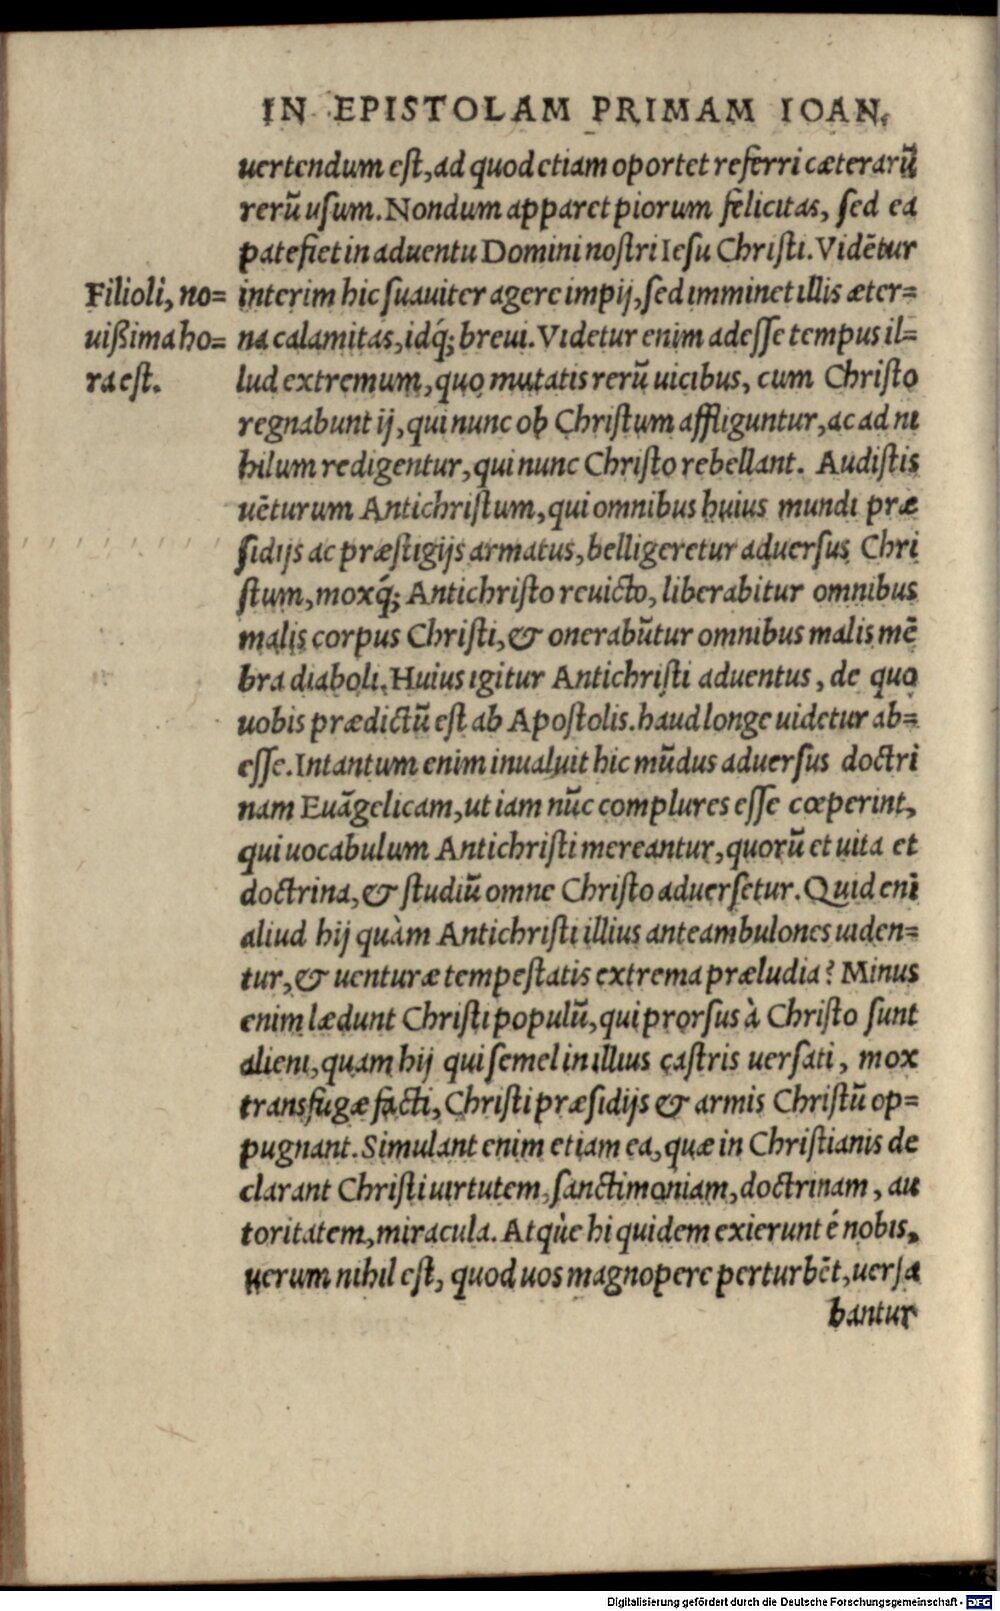 IN EPISTOLAM PRIMAM IOAN.
uertendum est, ad quod etiam oportet referri cæterarũ
rerũ usum. Nondum apparet piorum felicitas, sed ea
patefiet in aduentu Domini nostri Iesu Christi. Vidẽtur
Filioli, no=
uißima ho=
ra est.
interim hic suauiter agere impij, sed imminet illis æter=
na calamitas, idq́; breui. Videtur enim adesse tempus il=
lud extremum, quo mutatis rerũ uicibus, cum Christo
regnabunt ij, qui nunc ob Christum affliguntur, ac ad ni
hilum redigentur, qui nunc Christo rebellant. Audistis
uẽturum Antichristum, qui omnibus huius mundi præ
sidijs ac præstigijs armatus, belligeretur aduersus Chri
stum, moxq́; Antichristo reuicto, liberabitur omnibus
malis corpus Christi, & onerabũtur omnibus malis mẽ
bra diaboli. Huius igitur Antichristi aduentus, de quo
uobis prædictũ est ab Apostolis. haud longe uidetur ab=
esse. Intantum enim inualuit hic mũdus aduersus doctri
nam Euãgelicam, ut iam nũc complures esse cœperint,
qui uocabulum Antichristi mereantur, quorũ et uita et
doctrina, & studiũ omne Christo aduersetur. Quid enĩ
aliud hij quàm Antichristi illius anteambulones uiden=
tur, & uenturæ tempestatis extrema præludia? Minus
enim lædunt Christi populũ, qui prorsus à Christo sunt
alieni, quam hij qui semel in illius castris uersati, mox
transfugæ facti, Christi præsidijs & armis Christũ op=
pugnant. Simulant enim etiam ea, quæ in Christianis de
clarant Christi uirtutem, sanctimoniam, doctrinam, au
toritatem, miracula. Atqùe hi quidem exierunt é nobis,
uerum nihil est, quod uos magnopere perturbẽt, uersa
bantur
Digitalisierung gefördert durch die Deutsche Forschungsgemeinschaft - DFG